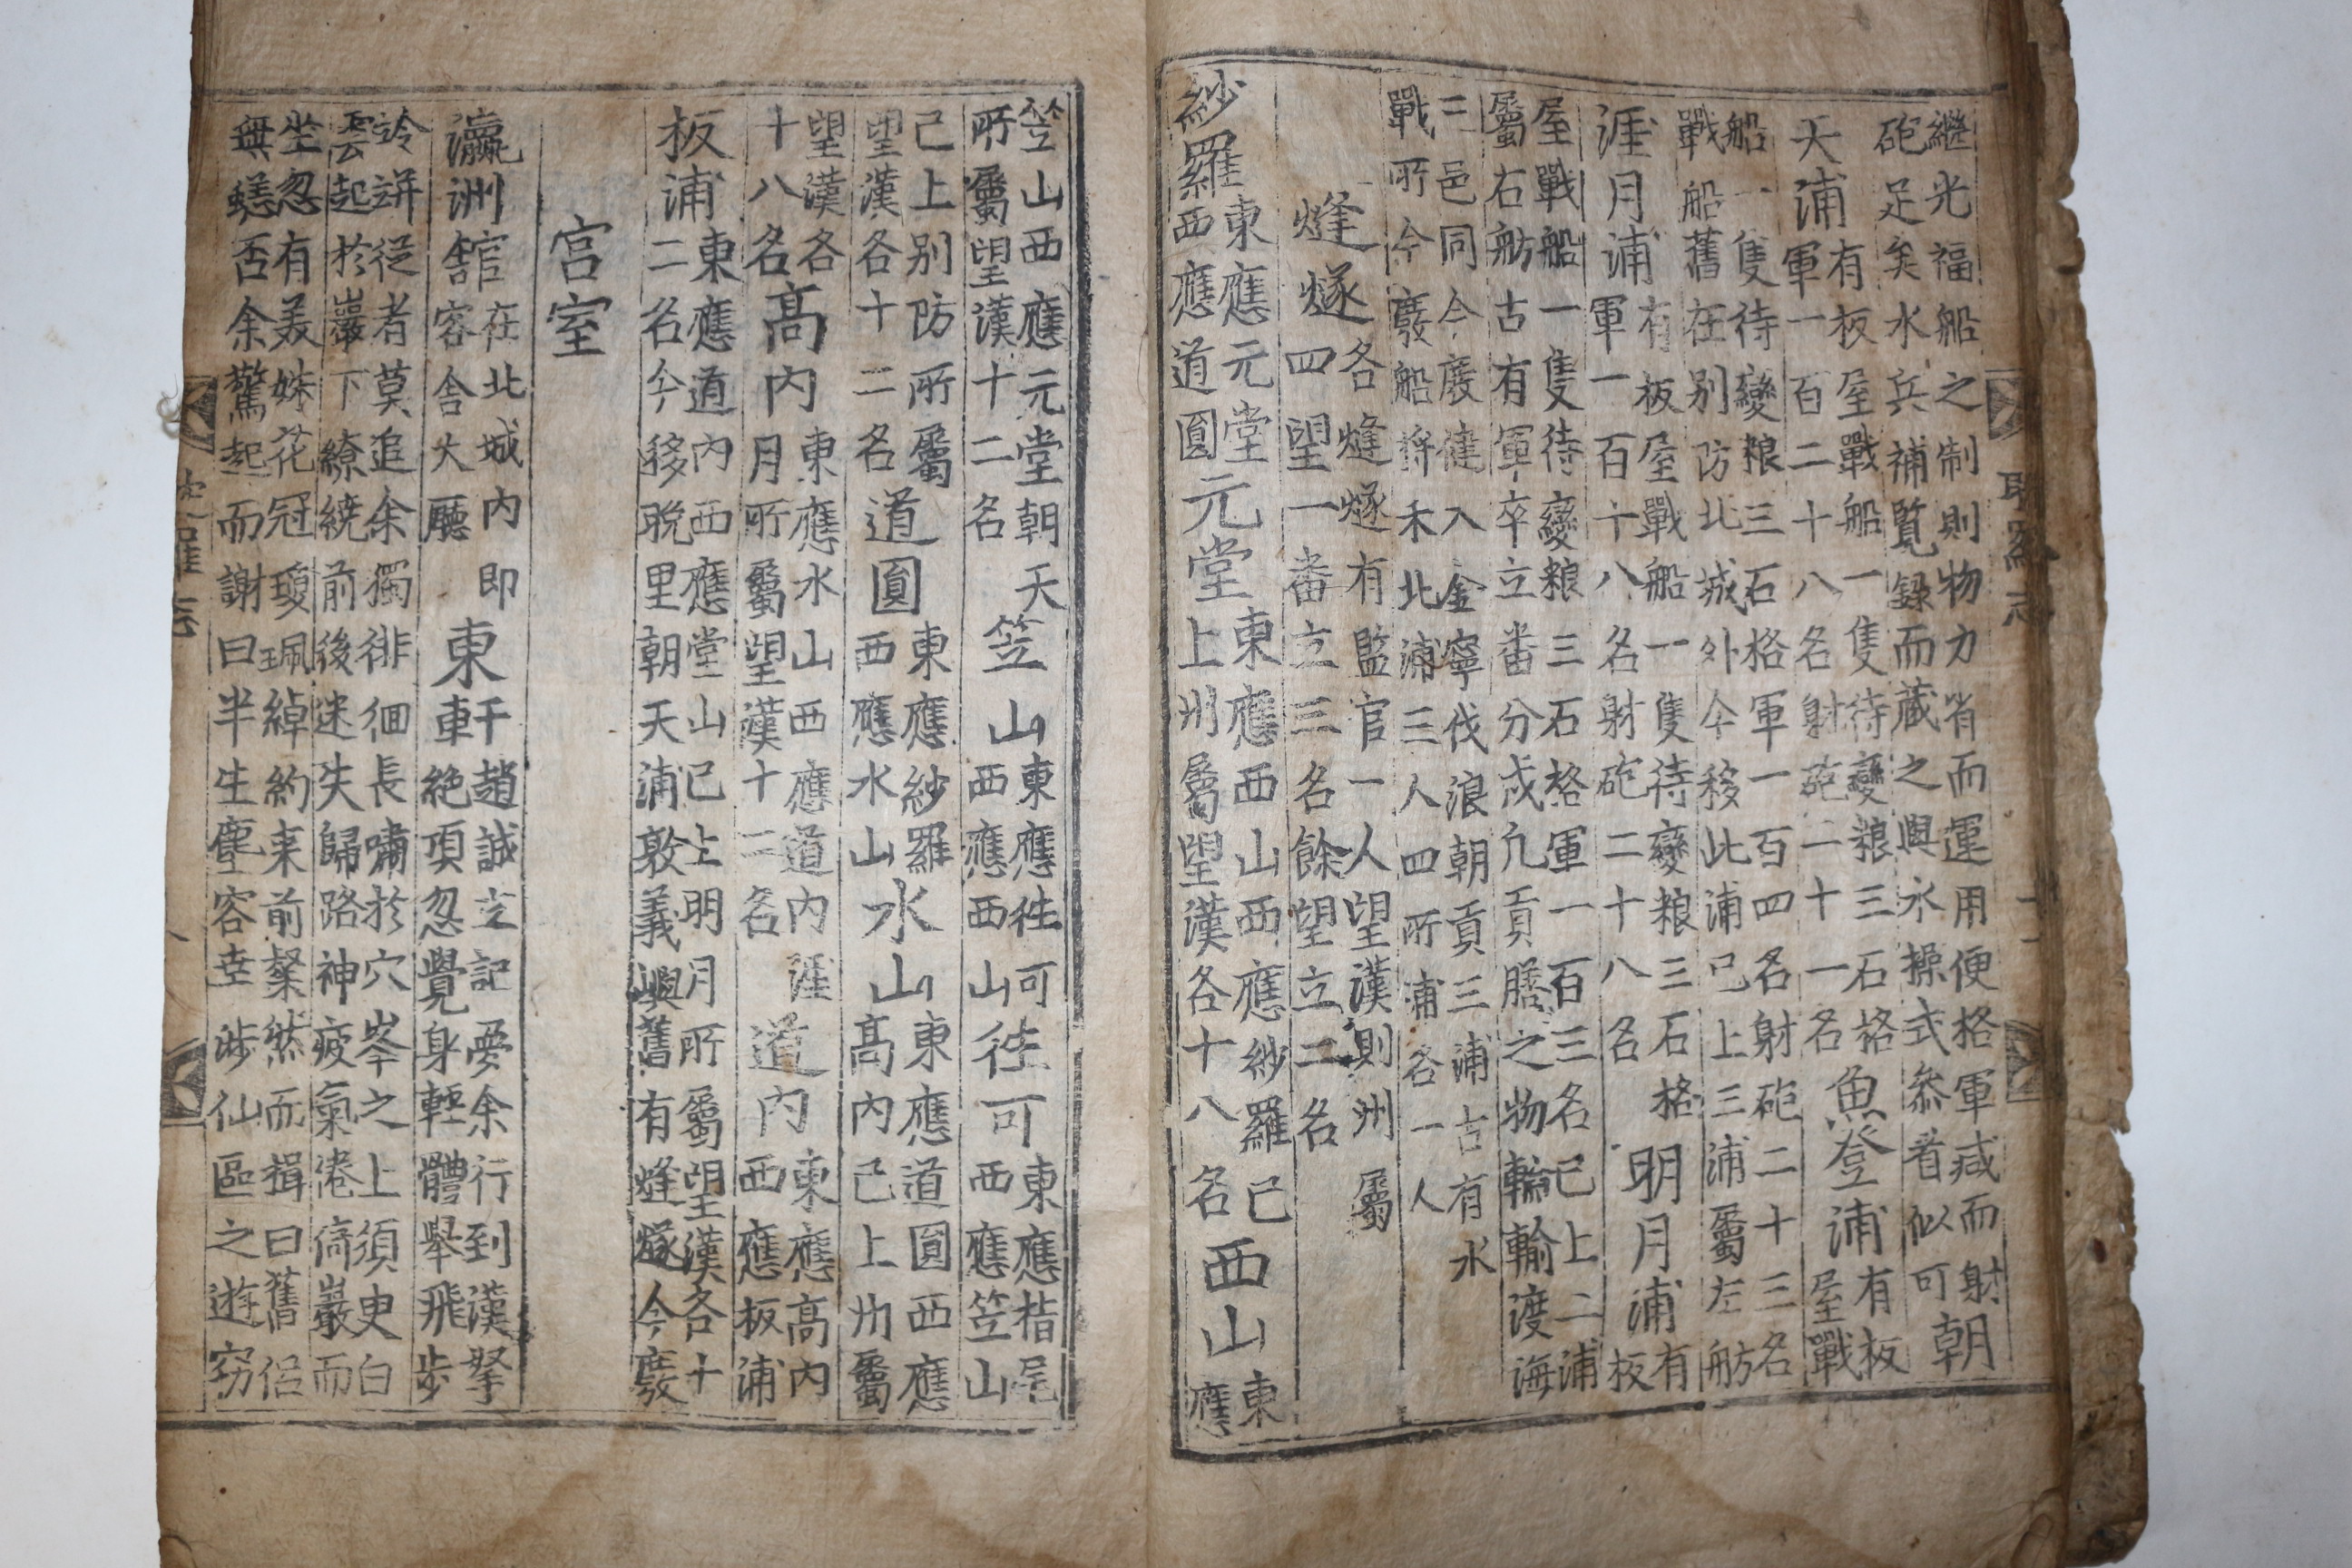 繼光福船之制則物力省而運用便格軍減而射
砲足矣水兵補覽録而蔵之與水操式參看似可
朝
天浦
有板屋戰船一隻待變粮三石格
軍一百二十八名射砲二十一名
魚登浦
有板
屋戰
船一隻待變粮三石格軍一百四名射砲二十三名
戰船舊在别防北城外今移此浦已上三浦屬左舫
涯月浦
有板屋戰船一隻待變粮三石格
軍一百十八名射砲二十八名
明月浦
有
板
屋戰船一隻待變粮三石格軍一百三名已上二浦
屬右舫古有軍卒立畨分戍凢貢膳之物輪輸渡海
三邑同今廢健入金寧伐浪朝貢三浦古有水
戰所今廢船將禾北浦三人四所浦各一人
烽燧
各烽燧有監官一人望漢則州屬
四望一畨立三名餘望立二名
紗羅
東應元堂
西應道圓
元堂
東應西山西應紗羅已
上州屬望漢各十八名
西山
東
應
耽羅志
十一
笠山西應元堂朝天
所屬望漢十二名
笠山
東應徃可
西應西山
徃可
東應㭲尾
西應笠山
已上别防所屬
望漢各十二名
道圓
東應紗羅
西應水山
水山
東應道圓西應
高內已上州屬
望漢各
十八名
高內
東應水山西應道內涯
月所屬望漢十二名
道內
東應高內
西應板浦
板浦
東應道內西應堂山已上明月所屬望漢各十
二名今移晩里朝天浦敦義嶼舊有烽燧今廢
宮室
瀛洲舘
在北城内即
客舍大廳
東軒
趙誠立記夢余行到漢拏
絶頂忽覺身輕體舉飛步
泠跰從者莫追余獨徘徊長嘯於穴峯之上須叟白
雲起於巖下繚繞前後迷失歸路神疲氣倦倚巖而
坐忽有美姝花冠瓊珮綽約来前粲然而揖曰舊侣
無蟋否余驚起而謝曰半生塵容幸涉仙區之遊窃